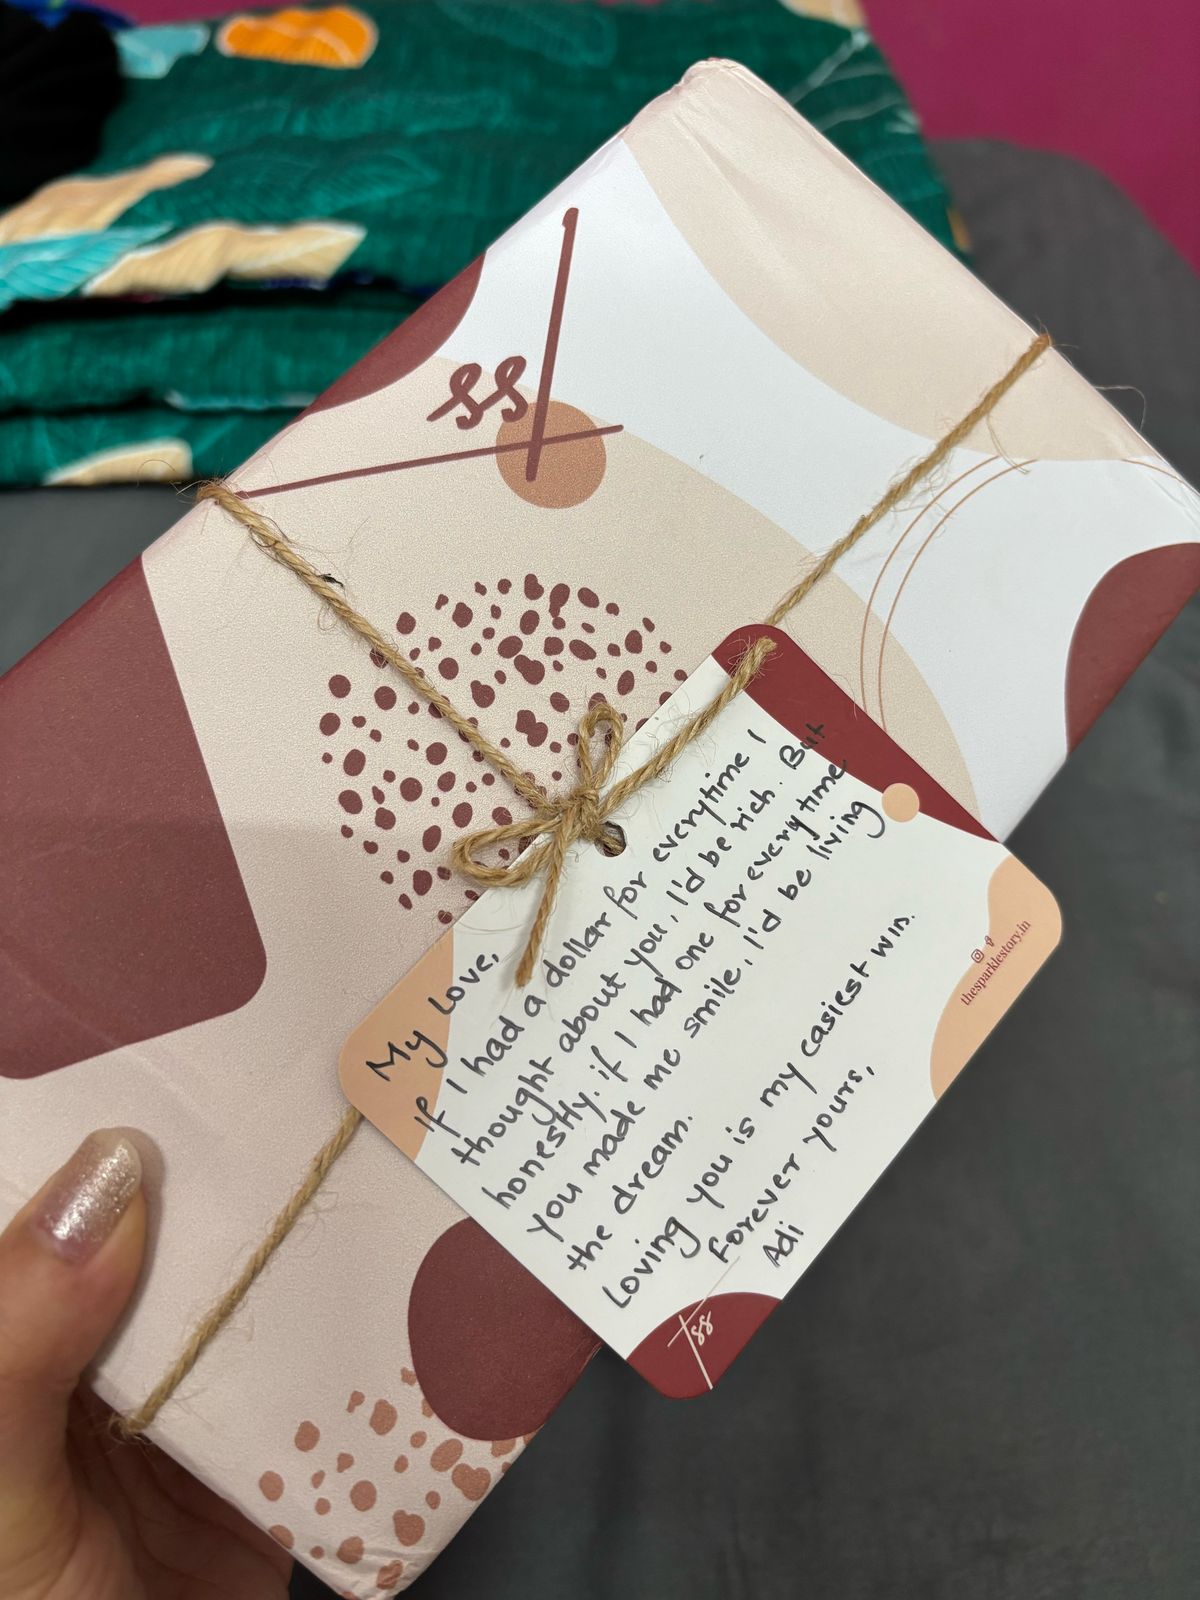 ss
My Love,
If I had a dollar for everytime I
thought about you, I'd be rich. But
honestly. if I had one for everytime
you made me smile, I'd be living
the dream.
Loving you is my easiest win.
Forever yours,
Adi
thesparklestory.in
Tss